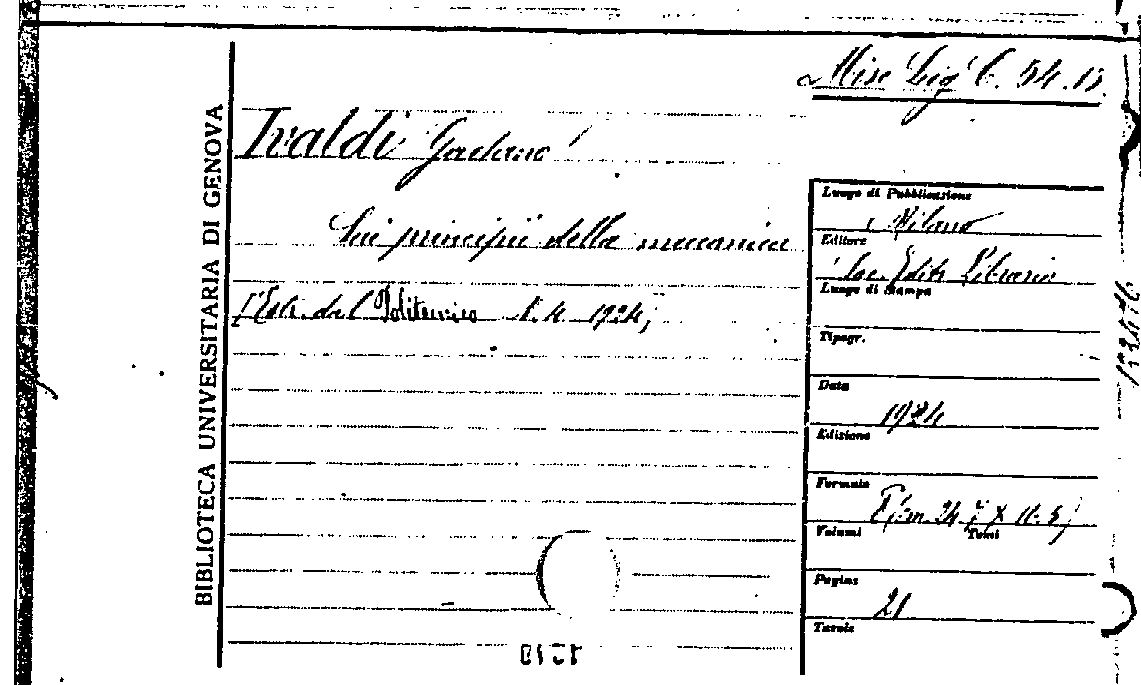 BIBLIOTECA UNIVERSITARIA DI GENOVA
Misc Lig C. 54.13.
Ivaldi Gaetano
Sui principii della meccanica
[Estr. dal Politecnico N. 4. 1924;
Luogo di Pubblicazione
Milano
Editore
Soc. Editr. Libraria
Luogo di Stampa
Tipogr.
Data
1924
Edizione
Formato
Volumi Tomi
Pagine
21
Tavole